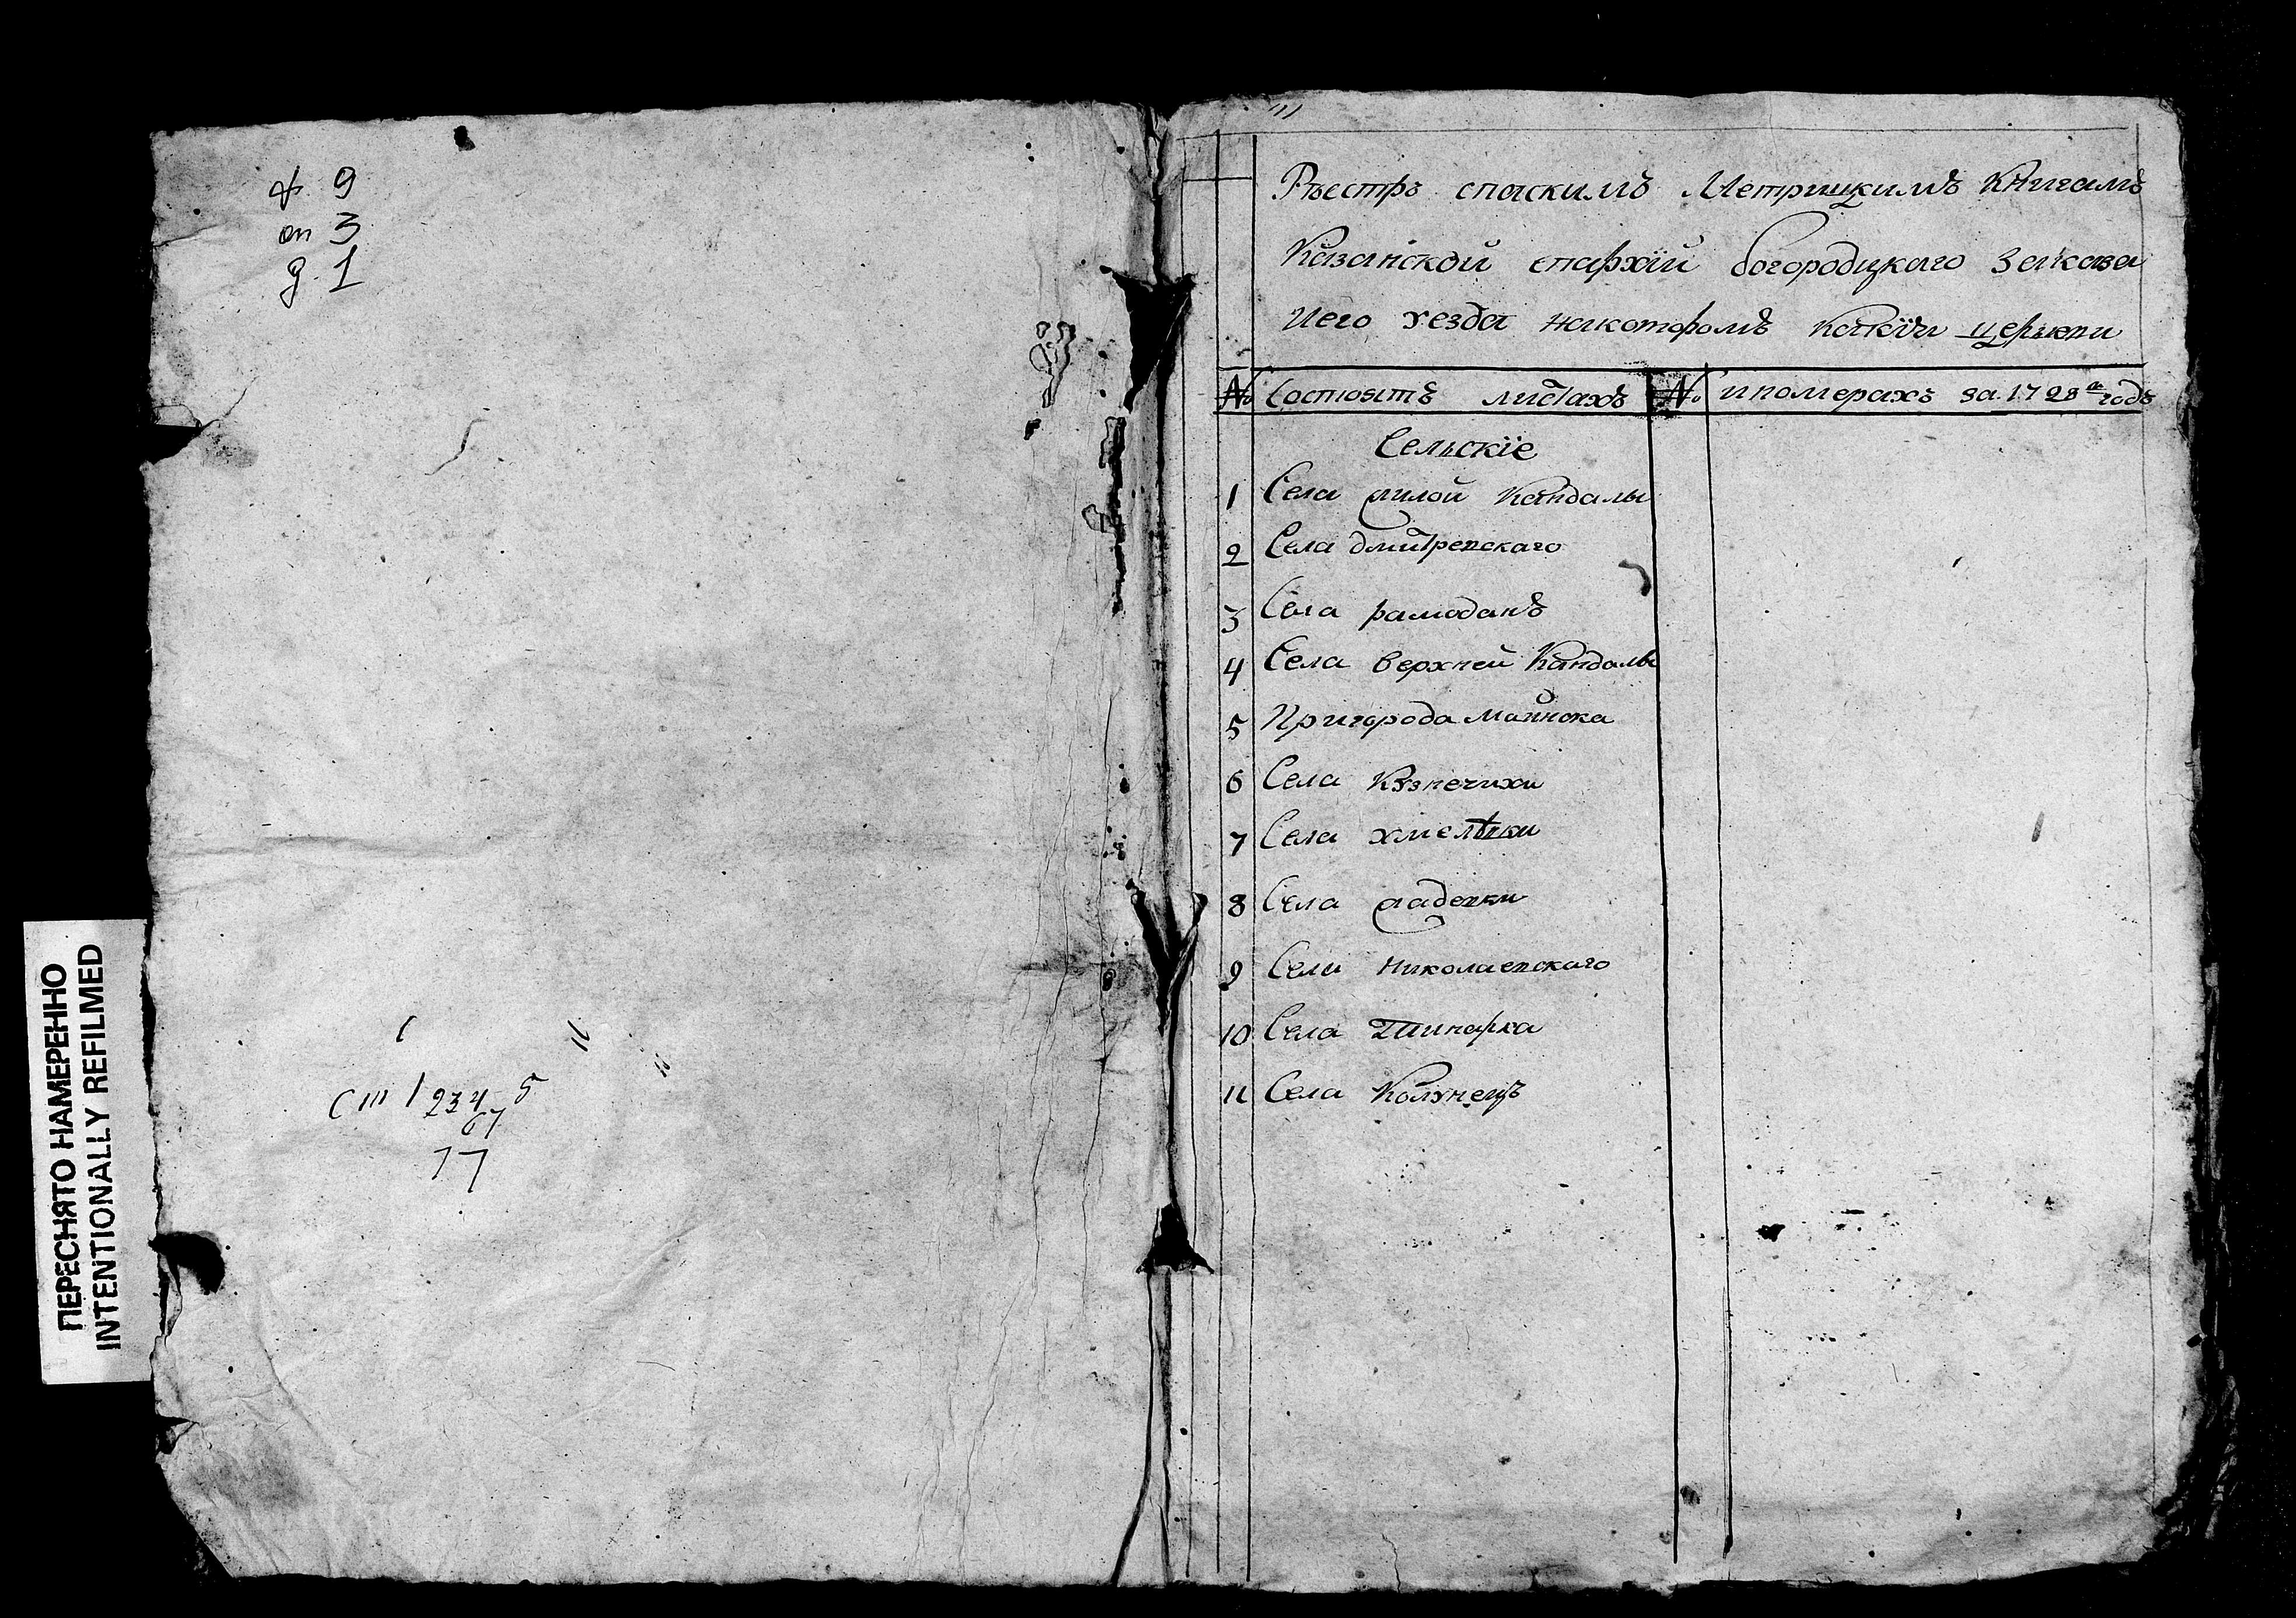 ф. 9
оп 3
д. 1
ст 1 234 5
67
77
ПЕРЕСНЯТО НАМЕРЕННО
INTENTIONALLY REFILMED
Рѣестръ спаскимъ Метрицкимъ Книгамъ
Казанской епархїи богородицкаго Заказа
Иего уезда накоторомъ какїи церькви
№ Состоятъ листахъ № иномерахъ за 1798 годъ
Сельскїе
1 Села малой Кандалы
2 Села дмитревскаго
3 Села рамоданъ
4 Села верхней Кандалы
5 Пригорода майнска
6 Села Кузнечихи
7 Села хмелѣвки
8 Села
9 Села николаевскаго
10 Села
11 Села Колунецъ